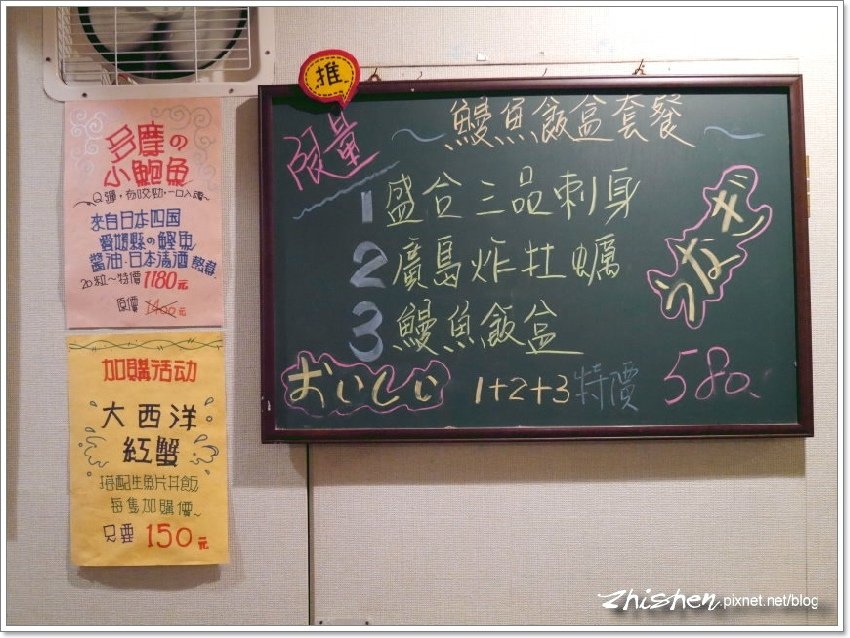 多摩の
小鮑魚
Q彈，有咬勁，一口入魂~
來自日本四国
愛媛縣の鰹魚
醬油.日本清酒 熬煮.
20粒~特價1180元
原價 1400元
加購活动
大西洋
紅蟹
搭配生魚片丼飯
每隻加購價~
只要 150元
推
限量
~ 鰻魚飯盒套餐 ~
1 盛合三品刺身
2 廣島炸牡蠣
3 鰻魚飯盒
うなぎ
おいしい 1+2+3特價 580.
zhishen.pixnet.net/blog